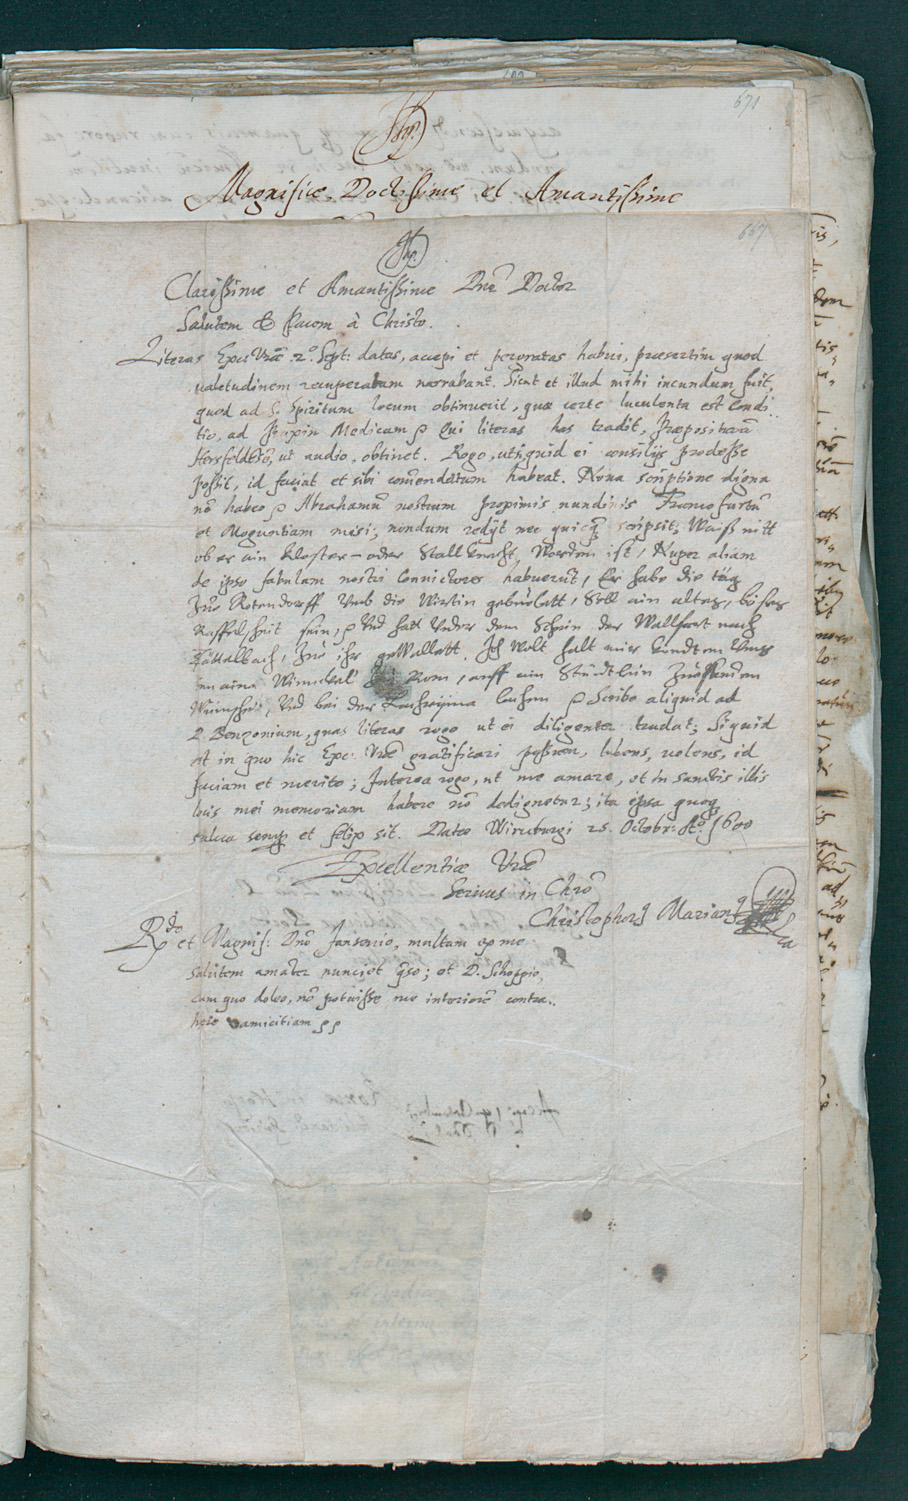 671
Jhs.
Magnifice, Doctissime et Amantissime
667
Jhs.
Clarissime et Amantissime Dne Doctor
Salutem & pacem à Christo.
Literas Exc: Vrae 2º Sept: datas, accepi et pergratas habui, praesertim quod
ualetudinem recuperatam narrabant. Sicut et illud mihi iucundum fuit,
quod ad S. Spiritum locum obtinuerit, quae certe luculenta est Condi..
tio, ad Praxin Medicam Qui literas has tradit, Praeposituram
ut audio, obtinet. Rogo, ut siquid ei consilijs prodesse
possit, id faciat et sibi comendatum habeat. Noua scriptione digna
nō habeo Abrahamū nostrum proximis nundinis Francofurtū
et Moguntiam misi; nondum redijt nec quicq scripsit; Waiß nitt
ob er ain Kloster- oder Stall Knecht Worden ist, Nuper aliam
de ipso fabulam nostri Conuictores habuerūt, Er habe die täg
Zue Rotendorff Vmb die Wirtin gebuelett, Soll ain altes, böses
sein, Vnd hatt Vnder dem Schein der Wallfart nach
Zue ihr gewallett. Ich Wolt halt mier kundten Vnns
inn aine Winckel Zue Rom, auff ain Stündtlein
Vnd bei der lachen Scribo aliquid ad
D. Benzonium, quas literas rogo ut ei diligenter tradat; Siquid
At in quo hic Exc: Vrae gratificari possem, lubens, uolens, id
faciam et merito; Interea rogo, ut me amare, et in sanctis illis
locis mei memoriam habere nō dedignetur; ita ipsa quoq
salua semp et felix sit. Datae Wirceburgi 25. Octobr: Aº. 1600
Excellentiae Vrae
Seruus in Chrō
Christophorus Marianus
Rdo et Magnif: Dno Jansonio, multam ex me
salutem amanter nunciet qso; et D. Schoppio,
cum quo doleo, nō potuisse me interiorē contra..
here amicitiam